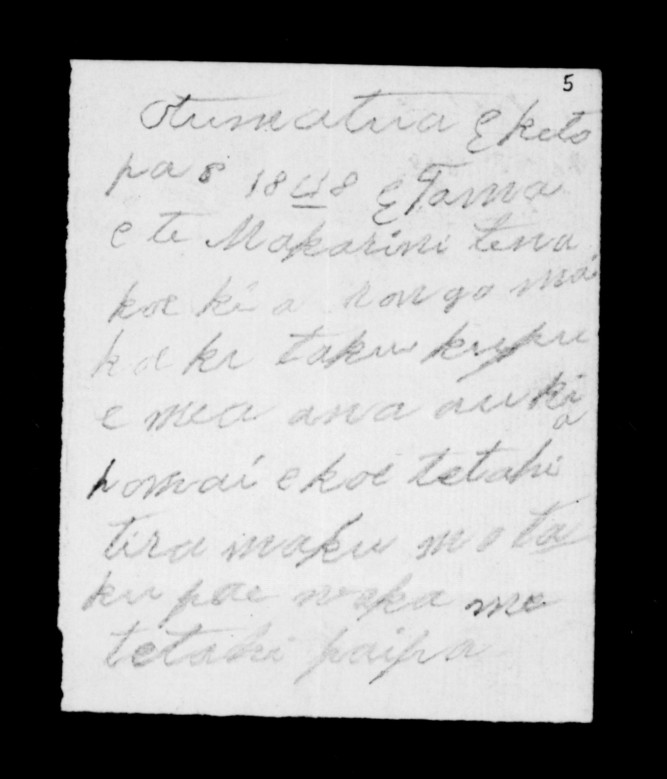 5
Otumatua Eketo
pa 8 1848 E Tama
e te Makarini tena
koe ki a rongo mai
koe ki taku kupu
e mea ana au ki
a
homai e koe tetahi
tira maku mo ta
ku pae waka me
tetahi paipa